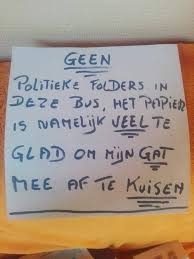 GEEN
POLITIEKE FOLDERS IN
DEZE BUS, HET PAPIER
IS NAMELIJK VEEL TE
GLAD OM MIJN GAT
MEE AF TE KUISEN